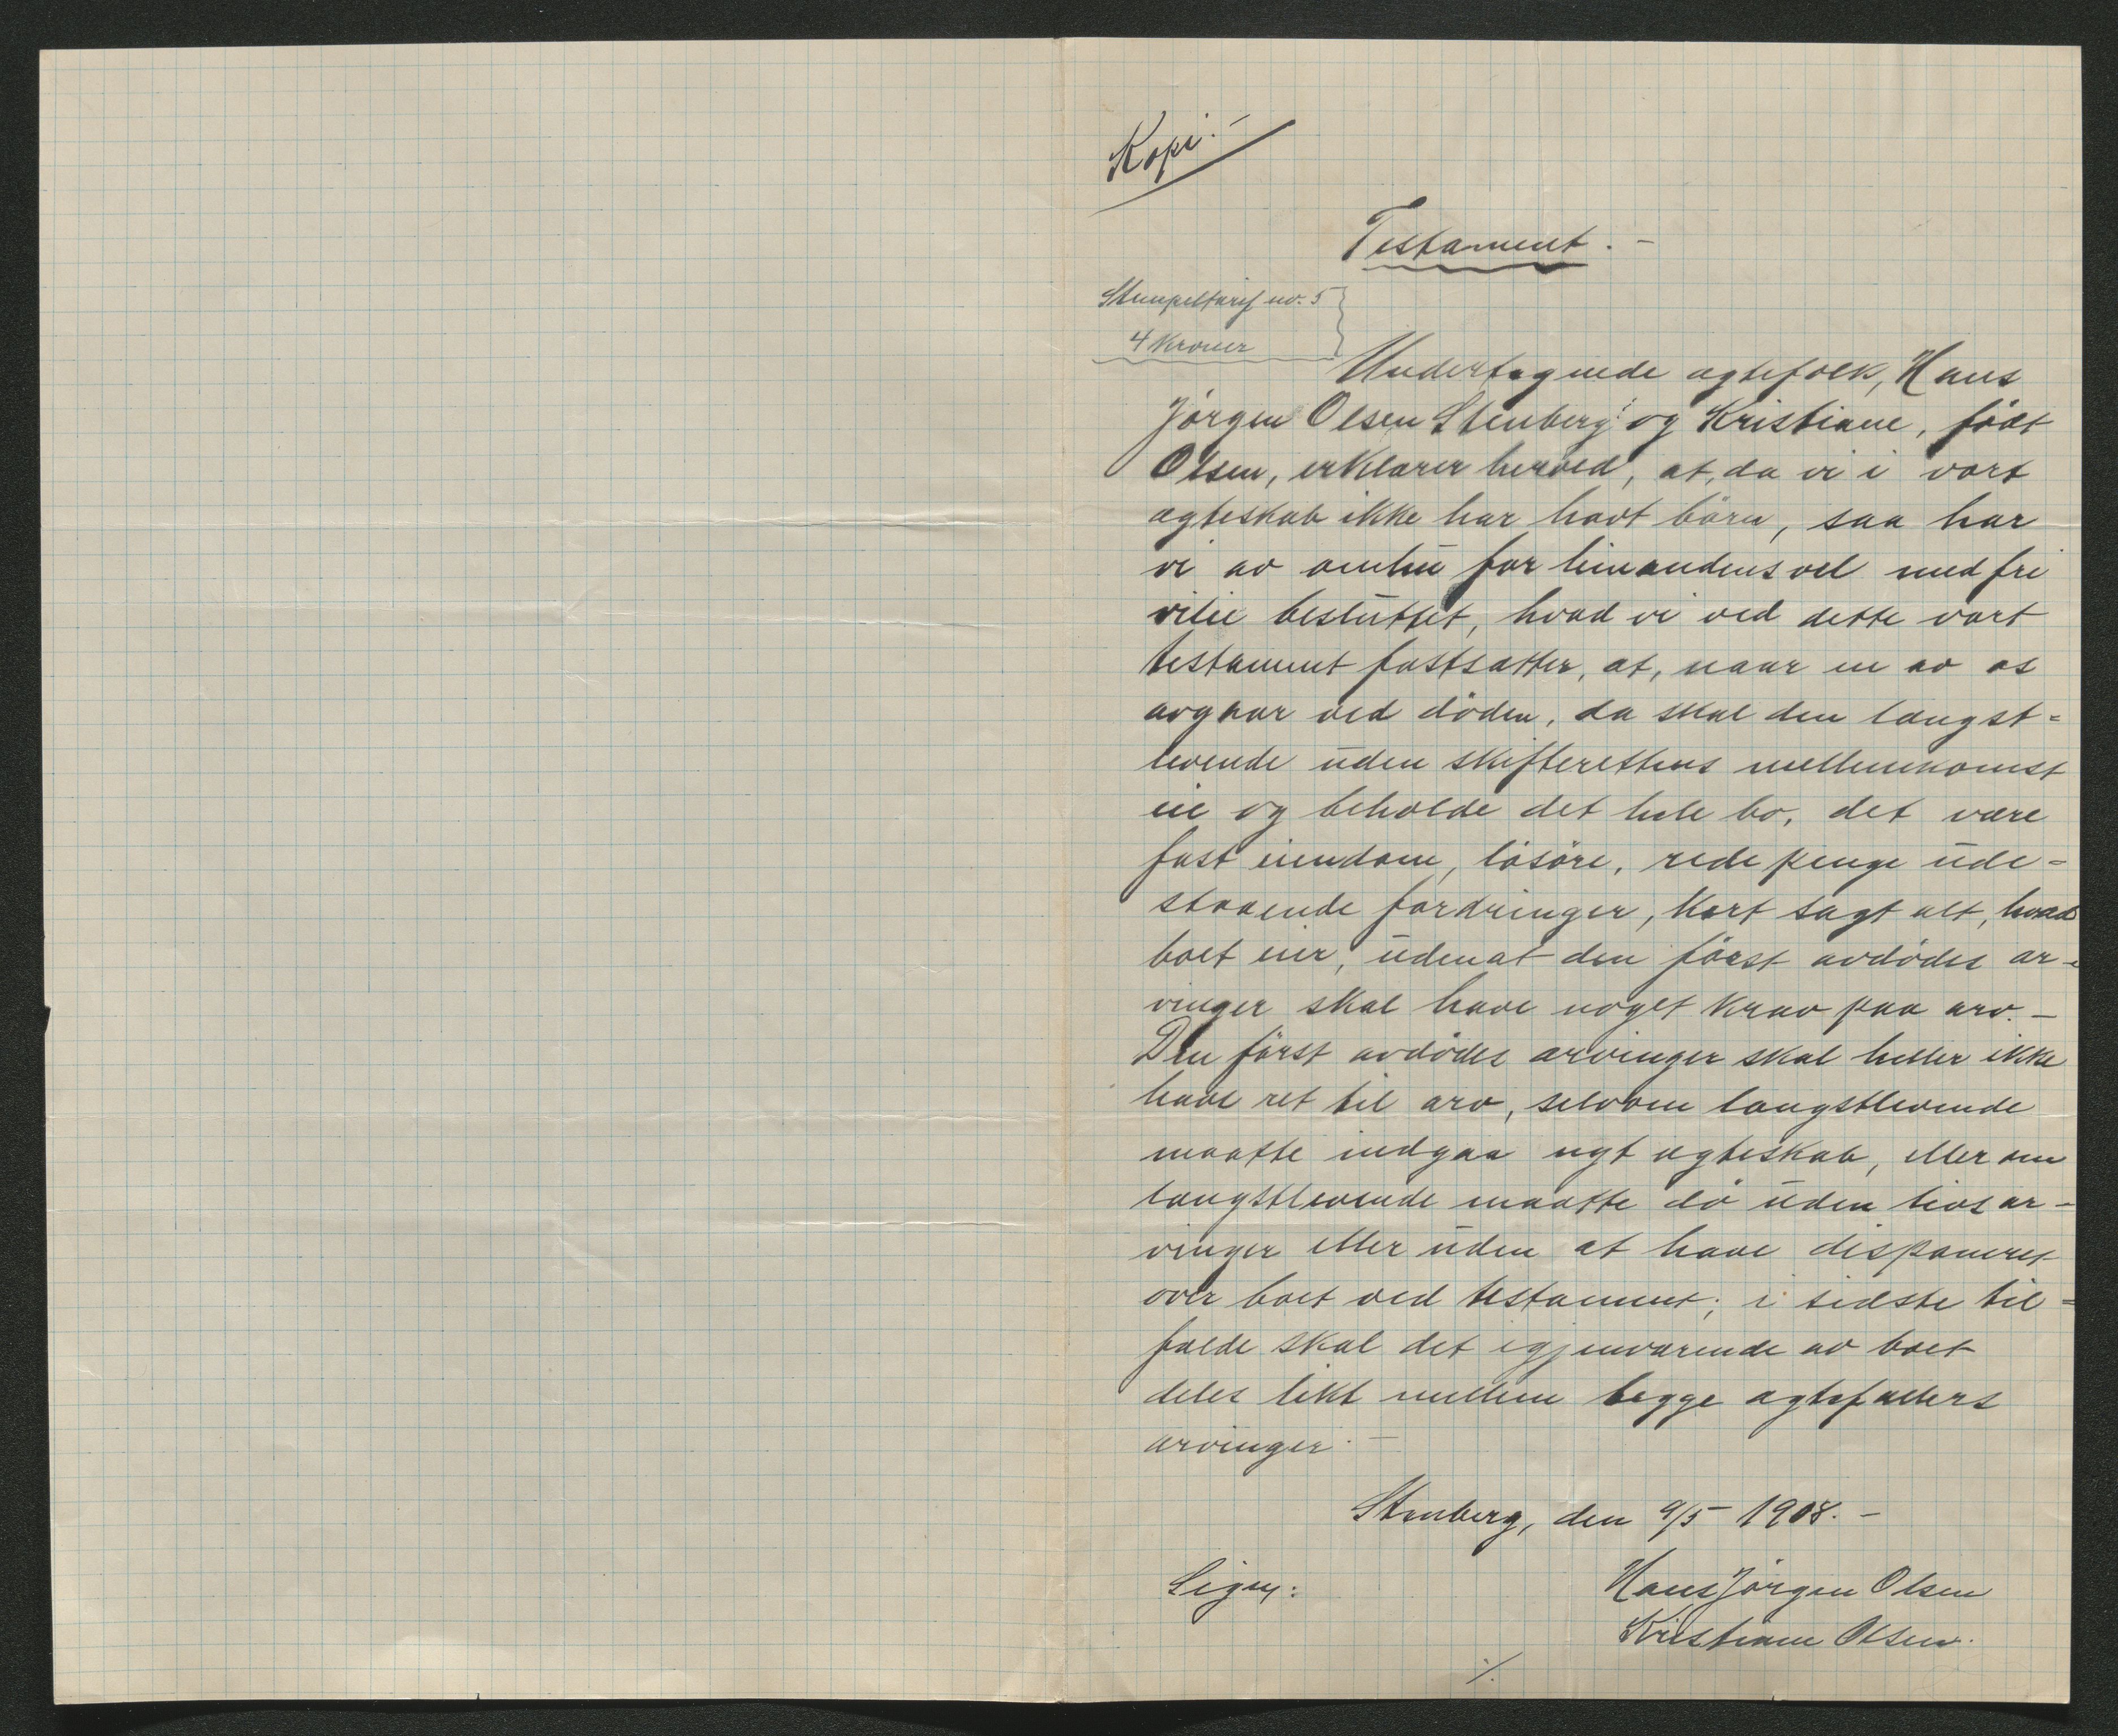 Kopi.-
Testament.-
Stempeltarif no. 5
4 Kroner
Undertegnede egtefolk, Hans
Jörgen Olsen Stenberg og Kristiane, födt
Olsen, erklærer herved, at, da vi i vort
egteskab ikke har havt börn, saa har
vi av omhu for hinandens vel med fri
vilie besluttet, hvad vi ved dette vort
testament fastsætter, at, naar en av os
avgaar ved döden, da skal den længst=
levende uden skifterettens mellemkomst
eie og beholde det hele bo, det være
fast eiendom, lösöre, rede penge ude=
staaende fordringer, kort sagt alt, hvad
boet eier, udenat den först avdödes ar-
vinger skal have noget krav paa arv.-
Den först avdödes arvinger skal heller ikke
have ret til arv, selvom længstlevende
maatte indgaa nyt egteskab, eller om
længstlevende maatte dö uden livsar-
vinger eller uden at have disponeret
over boet ved testament; i sidste til=
fælde skal det igjenværende av boet
deles likt mellem begge egtefællers
arvinger.-
Stenberg, den 9/5 1908.-
Sign:
Hans Jörgen Olsen
Kristiane Olsen.
./.